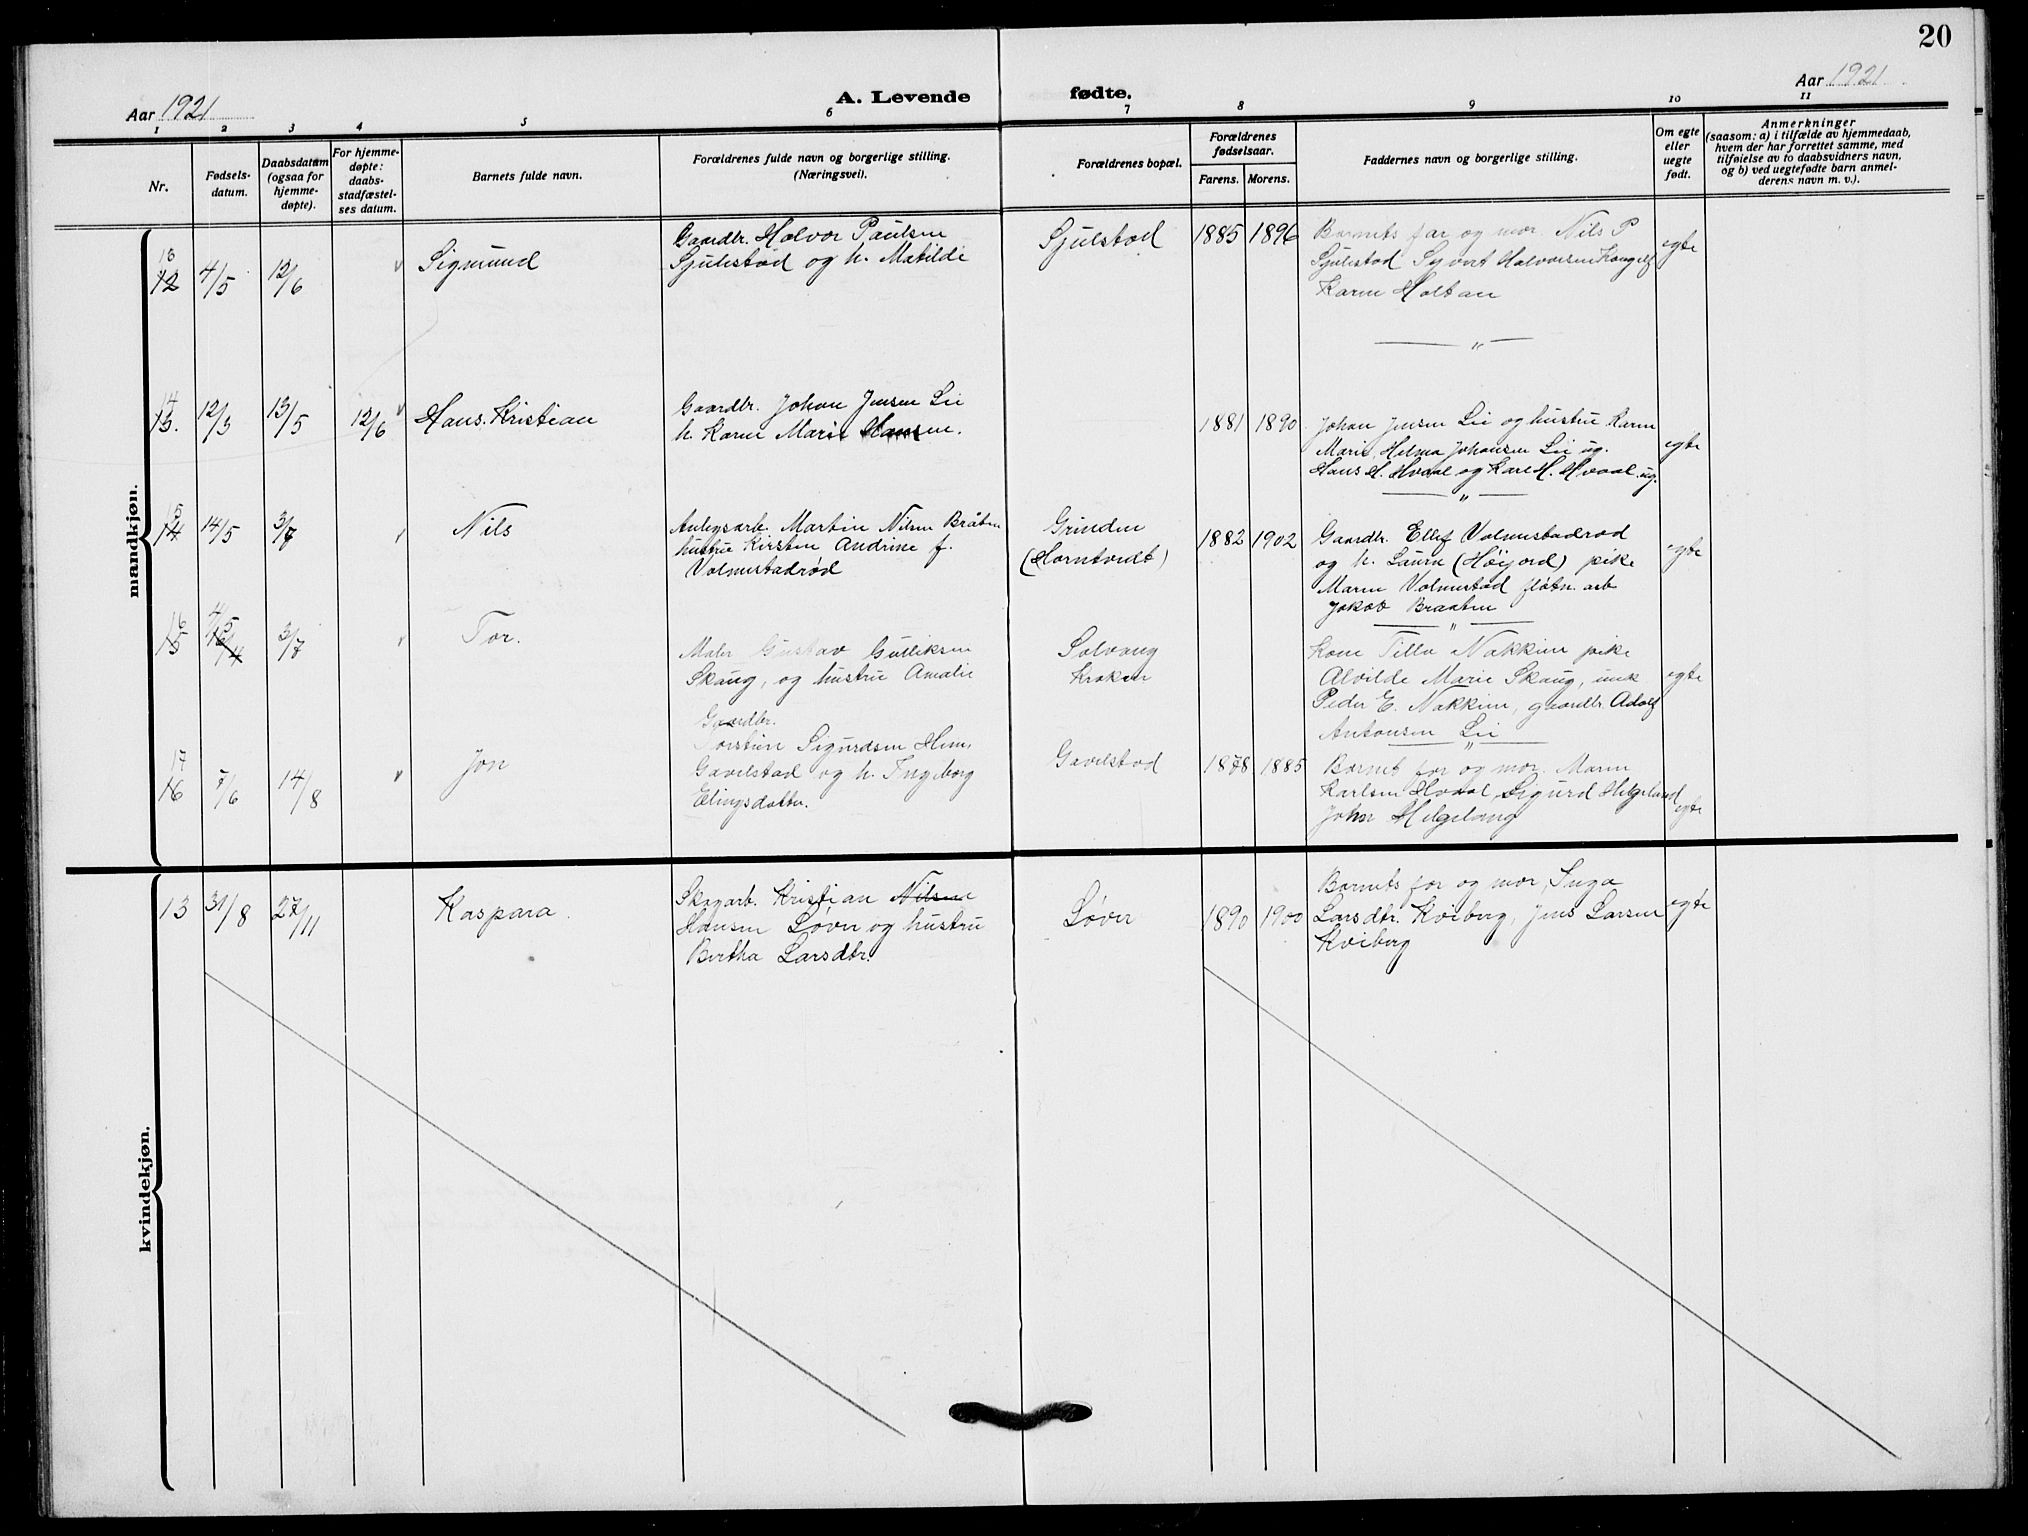 20
Aar 1921
A. Levende fødte.
Aar 1921
1 2 3 4 5 6 7 8 9 10 11
Nr.
Fødsels-
datum.
Daabsdatum
(ogsaa for
hjemme-
døpte).
For hjemme-
døpte:
daabs-
stadfæstel-
ses datum.
Barnets fulde navn.
Forældrenes fulde navn og borgerlige stilling.
(Næringsvei).
Forældrenes bopæl.
Forældrenes
fødselsaar.
Farens. Morens.
Faddernes navn og borgerlige stilling.
Om egte
eller
uegte
født.
Anmerkninger
(saasom: a) i tilfælde av hjemmedaab,
hvem der har forrettet samme, med
tilføielse av to daabsvidners navn,
og b) ved uegtefødte barn anmel-
derens navn m. v.).
mandkjøn.
13
12 4/5 12/6 Sigmund
Gaardbr. Halvor Paulsen
Sjulestad og h. Matilde
Sjulstad
1885 1896
Barnets far og mor. Nils P
Sjulestad Syvert Halvorsen
Karen Holtan
egte
"
14
13. 12/3 13/5 12/6 Hans Kristian
Gaardbr. Johan Jensen Lie
h. Karen Marie Hansen.
1881 1890
Johan Jensen Lie og hustru Karen
Marie, Helma Johansen Lie ug.
Hans H. Hvaal og Karl H. Hvaal ug.
egte
"
15
14 14/5 3/7 Nils
Anlegsarb. Martin Nilsen Bråten
hustru Kirsten Andrine f.
Volmestadrød
Grinden
(Horntvedt)
1882 1902
Gaardbr. Ellef Volmestadrød
og h. Laura (Høijord) pike
Maren Volmestad fløtn. arb
Jakob Braaten
egte
"
16
15 4/5 3/7 Tor.
Maler Gustav Gulliksen
Skaug, og hustru Amalie
Solvang
Kroken
Kone Tilla Nakkim pike
Alvilde Marie Skaug, unk
Peder E. Nakkim, gaardbr. Adolf
Antonsen Lie
egte
"
17
16 7/6 14/8 Jon
Gaardbr.
Torstein Sigurdsen Hem,
Gavelstad og h. Ingeborg
Elingsdatter.
Gavelstad
1878 1885
Barnets far og mor. Maren
Karlsen Hvaal, Sigurd Helgeland
John Helgeland
egte
kvindekjøn.
13 31/8 27/11 Kaspara
Skogarb. Kristian Nilsen
Hansen Løver og hustru
Bertha Larsdtr.
Løver
1890 1900
Barnets far og mor, Inga
Larsdtr. Kviberg, Jens Larsen
Kviberg
egte